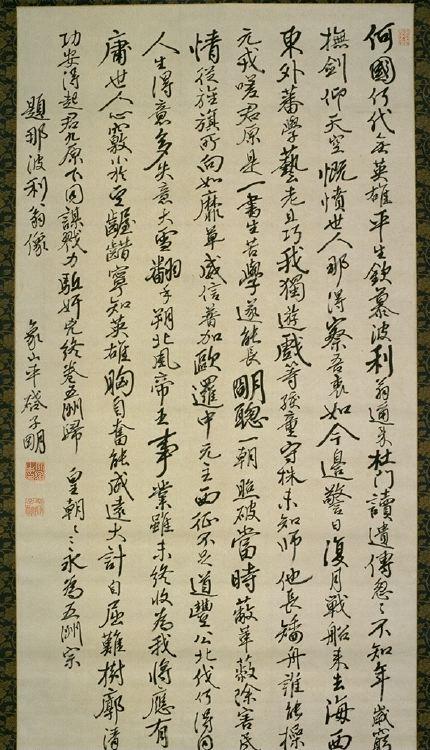 何國何代無英雄平生欽慕波利翁邇來杜門讀遺傳忽〻不知年歲窮
撫劍仰天空慨憤世人那得察吾衷如今邊警日復月戰船來去海西
東外蕃學藝老且巧我獨遊戲等孩童守株未知師他長矯舟誰能操
元戎嗟君原是一書生苦學遂能長明聰一朝照破當時弊革故除害民
情從旌旗所向如靡草威信普加歐邏中元主西征不足道豐公北伐何得同
人生得意多失意大雪翻手朔北風帝王事業雖未終收為我將應有
庸世人心竅小於豆齷齪寧知英雄胸自奮能成遠大計自屈難樹廓清
功安得起君九原下同謀戮力驅奸兇終卷五洲歸 皇朝〻〻永為五洲宗
題那波利翁像
象山平啓子明